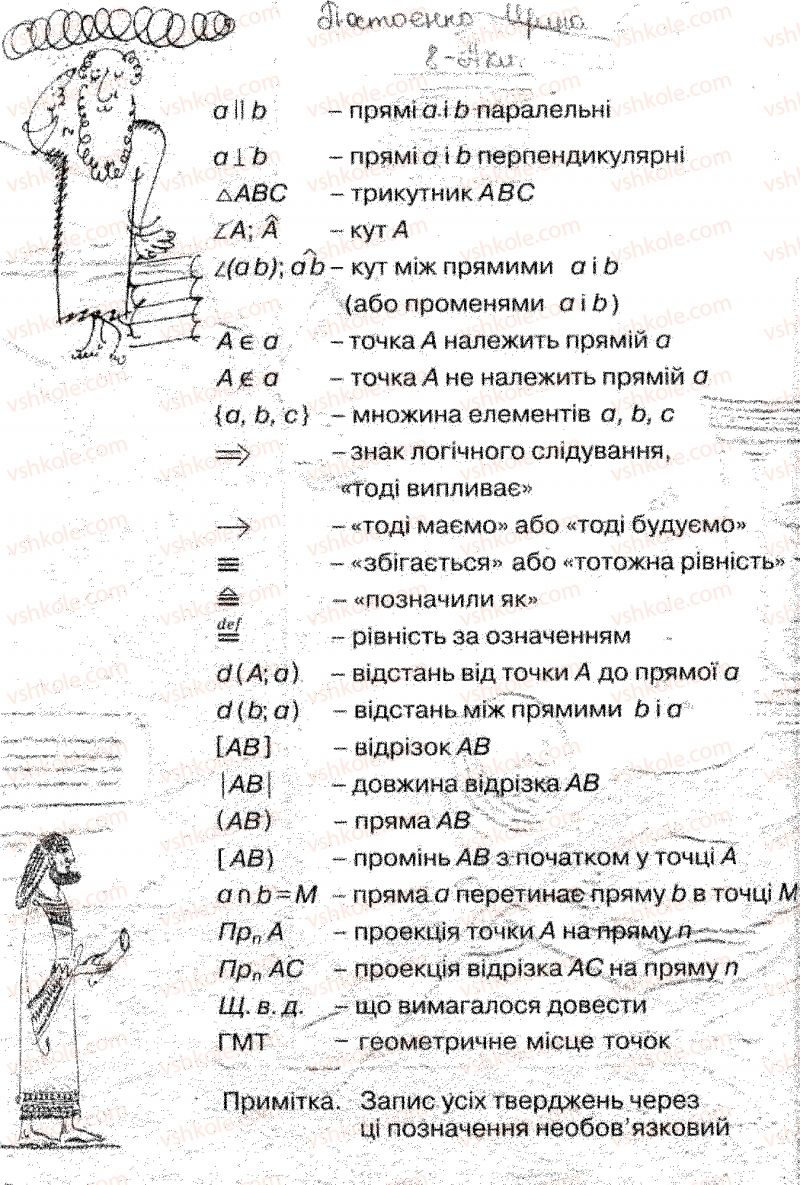 a || b – прямі a і b паралельні
a ⊥ b – прямі a і b перпендикулярні
△ABC – трикутник ABC
∠A; Â – кут A
∠(ab); a͡b – кут між прямими a і b
(або променями a і b)
A ∈ a – точка A належить прямій a
A ∉ a – точка A не належить прямій a
{a, b, c} – множина елементів a, b, c
⇒ – знак логічного слідування,
«тоді випливає»
→ – «тоді маємо» або «тоді будуємо»
≡ – «збігається» або «тотожна рівність»
≙ – «позначили як»
≝ – рівність за означенням
d(A; a) – відстань від точки A до прямої a
d(b; a) – відстань між прямими b і a
[AB] – відрізок AB
|AB| – довжина відрізка AB
(AB) – пряма AB
[AB) – промінь AB з початком у точці A
a ∩ b = M – пряма a перетинає пряму b в точці M
Прₙ A – проекція точки A на пряму n
Прₙ AC – проекція відрізка AC на пряму n
Щ. в. д. – що вимагалося довести
ГМТ – геометричне місце точок
Примітка. Запис усіх тверджень через
ці позначення необов’язковий
vshkole.com